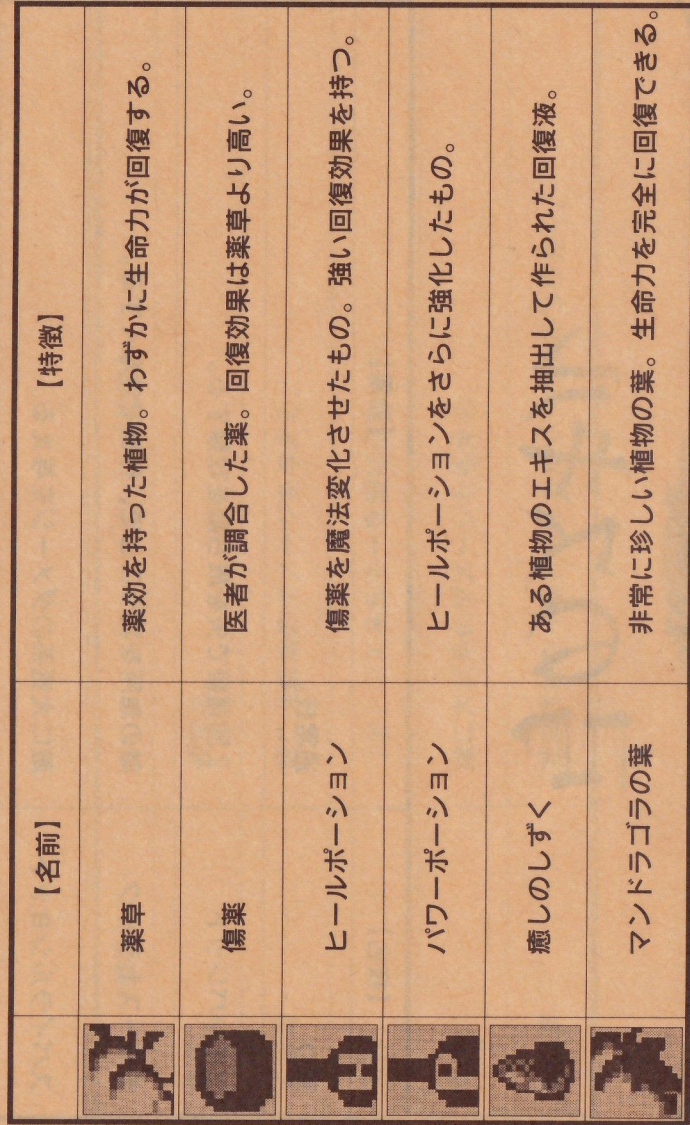 【名前】 【特徴】
薬草 薬効を持った植物。わずかに生命力が回復する。
傷薬 医者が調合した薬。回復効果は薬草より高い。
ヒールポーション 傷薬を魔法変化させたもの。強い回復効果を持つ。
パワーポーション ヒールポーションをさらに強化したもの。
癒しのしずく ある植物のエキスを抽出して作られた回復液。
マンドラゴラの葉 非常に珍しい植物の葉。生命力を完全に回復できる。